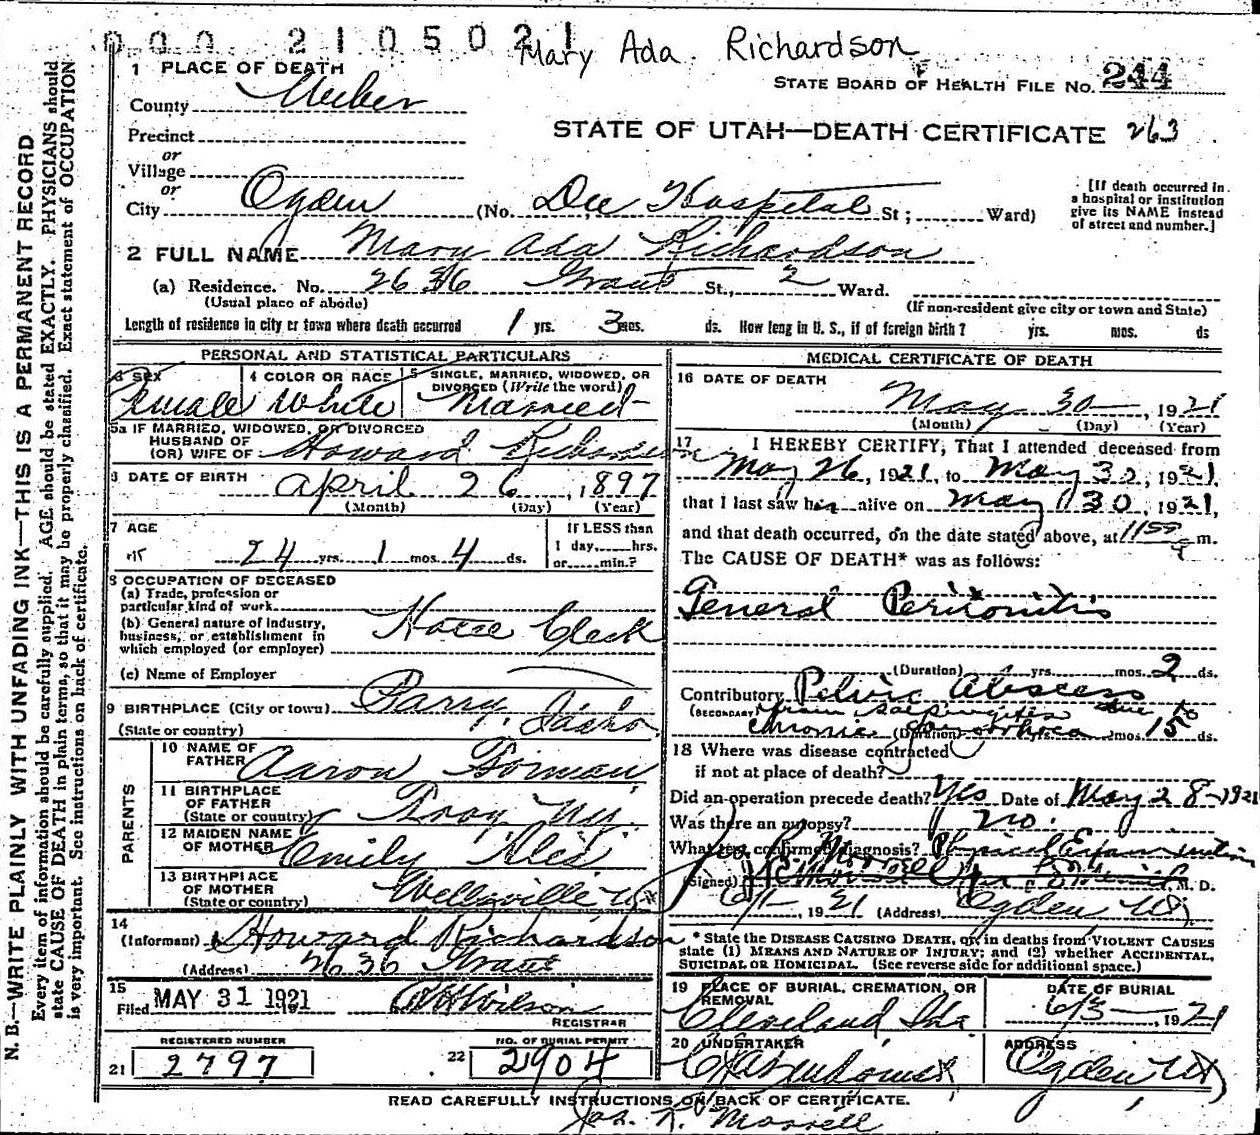 000 2105021
Mary Ada Richardson
STATE BOARD OF HEALTH FILE NO. 244
1 PLACE OF DEATH
County Weber
STATE OF UTAH—DEATH CERTIFICATE 263
Precinct
or
Village
or
City Ogden (No. Dee Hospital St; Ward)
[If death occurred in a hospital or institution give its NAME instead of street and number.]
2 FULL NAME Mary Ada Richardson
(a) Residence. No. 2636 Grant St., 2 Ward.
(Usual place of abode) (If non-resident give city or town and State)
Length of residence in city or town where death occurred 1 yrs. 3 mos. ds. How long in U. S., if of foreign birth? yrs. mos. ds
PERSONAL AND STATISTICAL PARTICULARS
3 SEX
Female
4 COLOR OR RACE
White
5 SINGLE, MARRIED, WIDOWED, OR DIVORCED (Write the word)
Married
5a IF MARRIED, WIDOWED, OR DIVORCED
HUSBAND OF
(OR) WIFE OF Howard Richardson
6 DATE OF BIRTH April 26, 1897
(Month) (Day) (Year)
7 AGE
24 yrs. 1 mos. 4 ds.
If LESS than
1 day, hrs.
or min.?
8 OCCUPATION OF DECEASED
(a) Trade, profession or
particular kind of work
(b) General nature of industry,
business, or establishment in
which employed (or employer)
(c) Name of Employer
9 BIRTHPLACE (City or town) Parry, Idaho
(State or country)
PARENTS
10 NAME OF
FATHER Aaron
11 BIRTHPLACE
OF FATHER
(State or country) Troy NY.
12 MAIDEN NAME
OF MOTHER Emily
13 BIRTHPLACE
OF MOTHER
(State or country) Wellsville Ut
14
(Informant) Howard Richardson
(Address) 2636 Grant
15
Filed MAY 31 1921
REGISTRAR
REGISTERED NUMBER
21 2797
NO. OF BURIAL PERMIT
22 2904
MEDICAL CERTIFICATE OF DEATH
16 DATE OF DEATH
May 30, 1921
(Month) (Day) (Year)
17 I HEREBY CERTIFY, That I attended deceased from
May 26, 1921, to May 30, 1921,
that I last saw her alive on May 30, 1921,
and that death occurred, on the date stated above, at m.
The CAUSE OF DEATH* was as follows:
General Peritonitis
(Duration) yrs. mos. 2 ds.
Contributory Pelvic Abscess
(SECONDARY) salpingitis due to
chronic (Duration) mos. 15 ds.
18 Where was disease contracted
if not at place of death?
Did an operation precede death? Yes Date of May 28-1921
Was there an autopsy? no.
What test confirmed diagnosis? Physical Examination
(Signed) M. D.
6/1-, 1921 (Address) Ogden Ut
* State the DISEASE CAUSING DEATH, or, in deaths from VIOLENT CAUSES
state (1) MEANS AND NATURE OF INJURY; and (2) whether ACCIDENTAL,
SUICIDAL OR HOMICIDAL. (See reverse side for additional space.)
19 PLACE OF BURIAL, CREMATION, OR
REMOVAL
Cleveland, Ida
DATE OF BURIAL
6/3, 1921
20 UNDERTAKER
ADDRESS
Ogden Ut
READ CAREFULLY INSTRUCTIONS ON BACK OF CERTIFICATE.
Jos. R. Morrell
N. B.—WRITE PLAINLY WITH UNFADING INK—THIS IS A PERMANENT RECORD
Every item of information should be carefully supplied. AGE should be stated EXACTLY. PHYSICIANS should
state CAUSE OF DEATH in plain terms, so that it may be properly classified. Exact statement of OCCUPATION
is very important. See instructions on back of certificate.